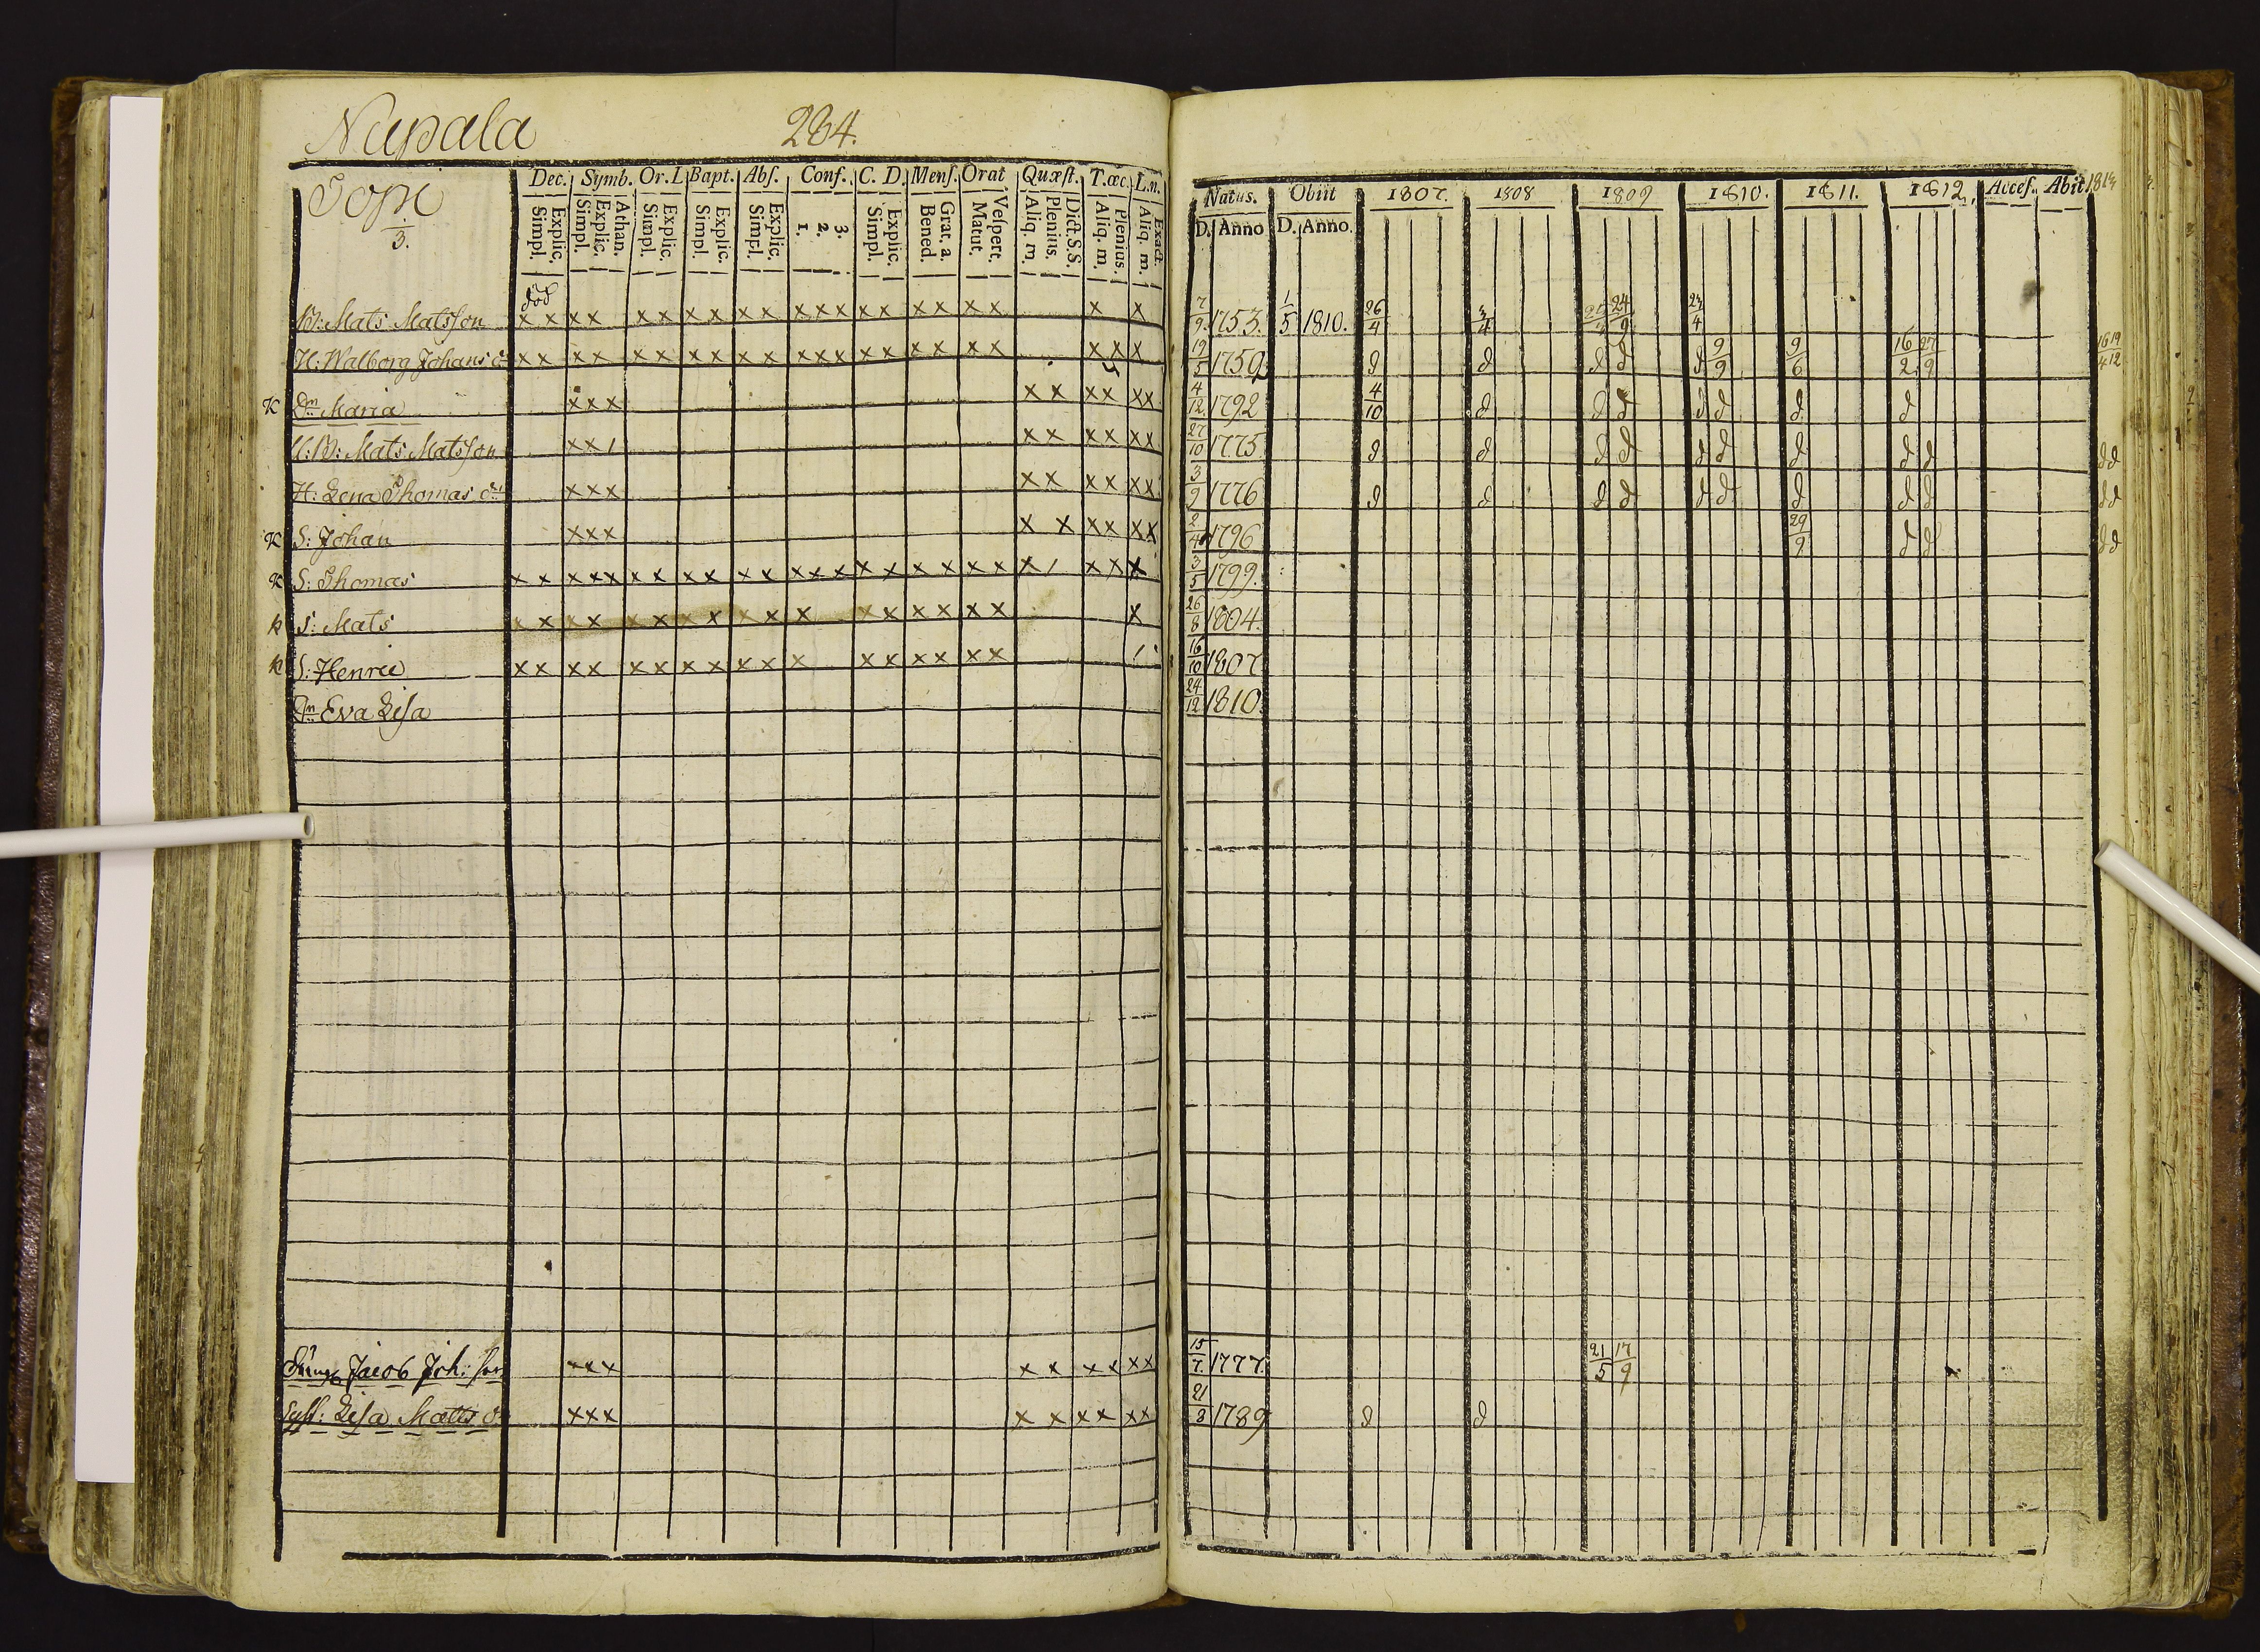 Nupala 284.
Topi
1/3.
Dec. Symb. Or. L Bapt. Abſ. Conf. C. D. Menſ. Orat Quæſt. T. œc. L. n.
Explic. Simpl. Athan. Explic. Simpl. Explic. Simpl. Explic. Simpl. Explic. Simpl. 3. 2. 1. Explic. Simpl. Grat. a. Bened. Veſpert. Matut. Dict. S.S. Plenius. Aliq. m. Plenius. Aliq. m. Exact. Aliq. m.
Natus. Obiit 1807. 1808 1809 1810. 1811. 1812. Acceſ. Abit. 1813
D. Anno D. Anno.
död
B: Mats Matsſon x x x x x x x x x x x x x x x x x x x x x 7/9. 1753. 1/5 1810. 26/4 3/4 24/9 23/4
H: Walborg Johans d:r x x x x x x x x x x x x x x x x x x x x x x 19/5 1759 d d d d d 9/9 9/6 16/2 27/9 16/4 19/12
K D:n Maria x x x x x x x x x 4/12 1792 4/10 d d d d d d d
U:B: Mats Matsſon x x / x x x x x x 27/10 1775 d d d d d d d d d d d
H: Lena Thomas d:r x x x x x x x x x 3/9 1776 d d d d d d d d d d d
K S: Johan x x x x x x x x x 2/4 1796 29/9 d d d d
K S: Thomas x x x x x x x x x x x x x x x x x x x x x / x x x 3/5 1799.
k S: Mats x x x x x x x x x x x x x x x x x x 26/8 1804.
k S: Henric x x x x x x x x x x x x x x x x x / 16/10 1807
D:n Eva Liſa 24/12 1810.
Dräng Jacob Joh: ſon x x x x x x x x x 15/7. 1777. 21/5 17/9
Liſa Matts d:r x x x x x x x x x 21/8 1789 d d